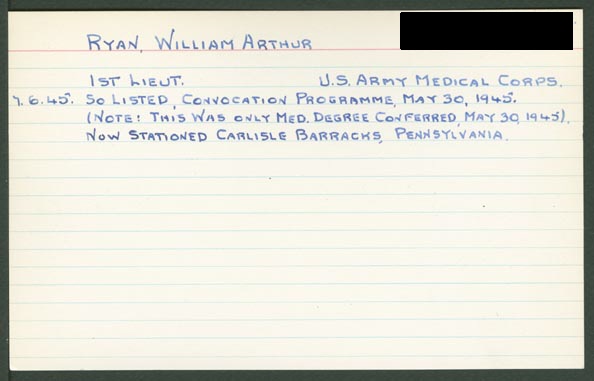 RYAN, WILLIAM ARTHUR
1ST LIEUT. U.S. ARMY MEDICAL CORPS.
7.6.45. SO LISTED, CONVOCATION PROGRAMME, MAY 30, 1945.
(NOTE: THIS WAS ONLY MED. DEGREE CONFERRED, MAY 30, 1945).
NOW STATIONED CARLISLE BARRACKS, PENNSYLVANIA.